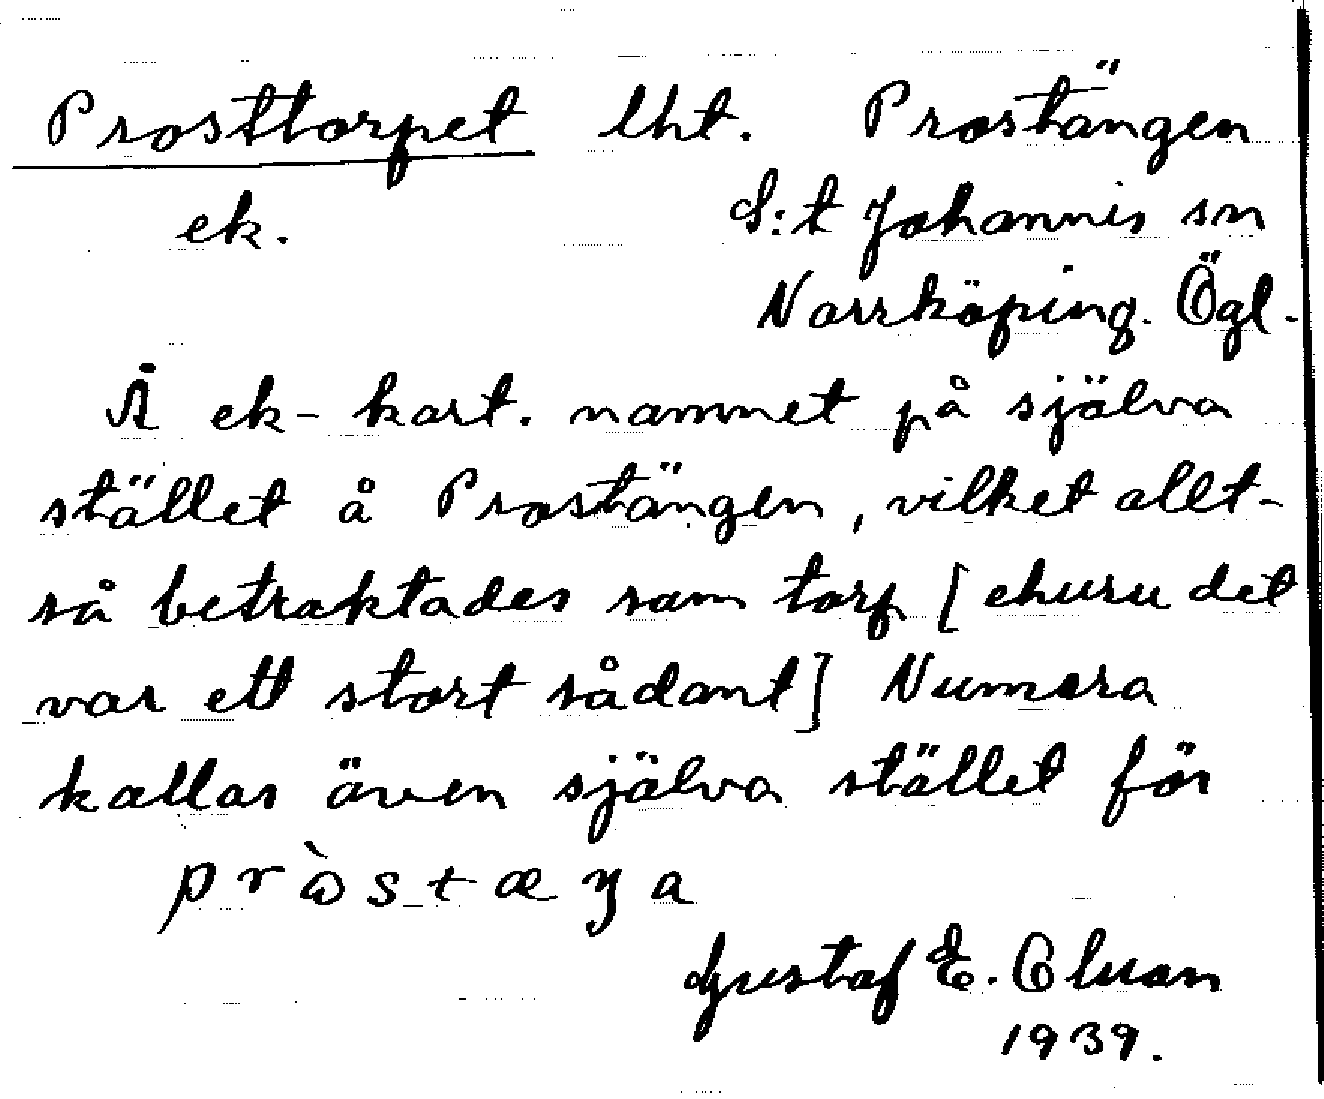 Prosttorpet lht. Prostängen
ek. S:t Johannis sn
Norrköping. Ögl.
Å ek-kart. namnet på själva
stället å Prostängen, vilket allt-
så betraktades som torp [ehuru det
var ett stort sådant] Numera
kallas även själva stället för
pròstæŋa
Gustaf E.
1939.